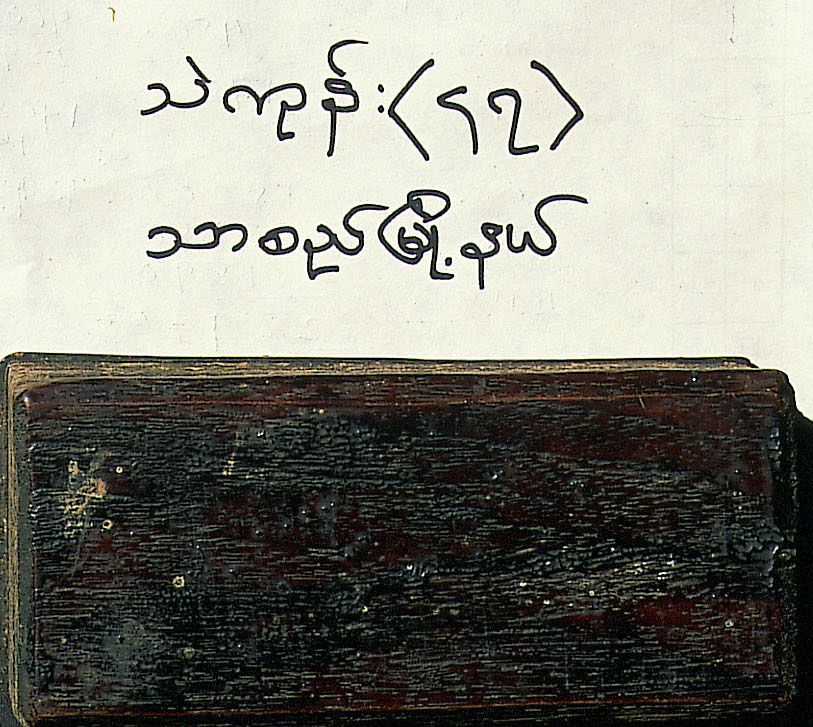 သဲကုန်း(၄၇)
သာစည်မြို့နယ်